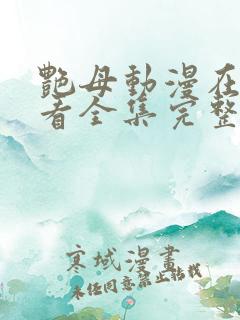 艷母動漫在
看全集完整
寒域漫畫
未经同意禁止转载